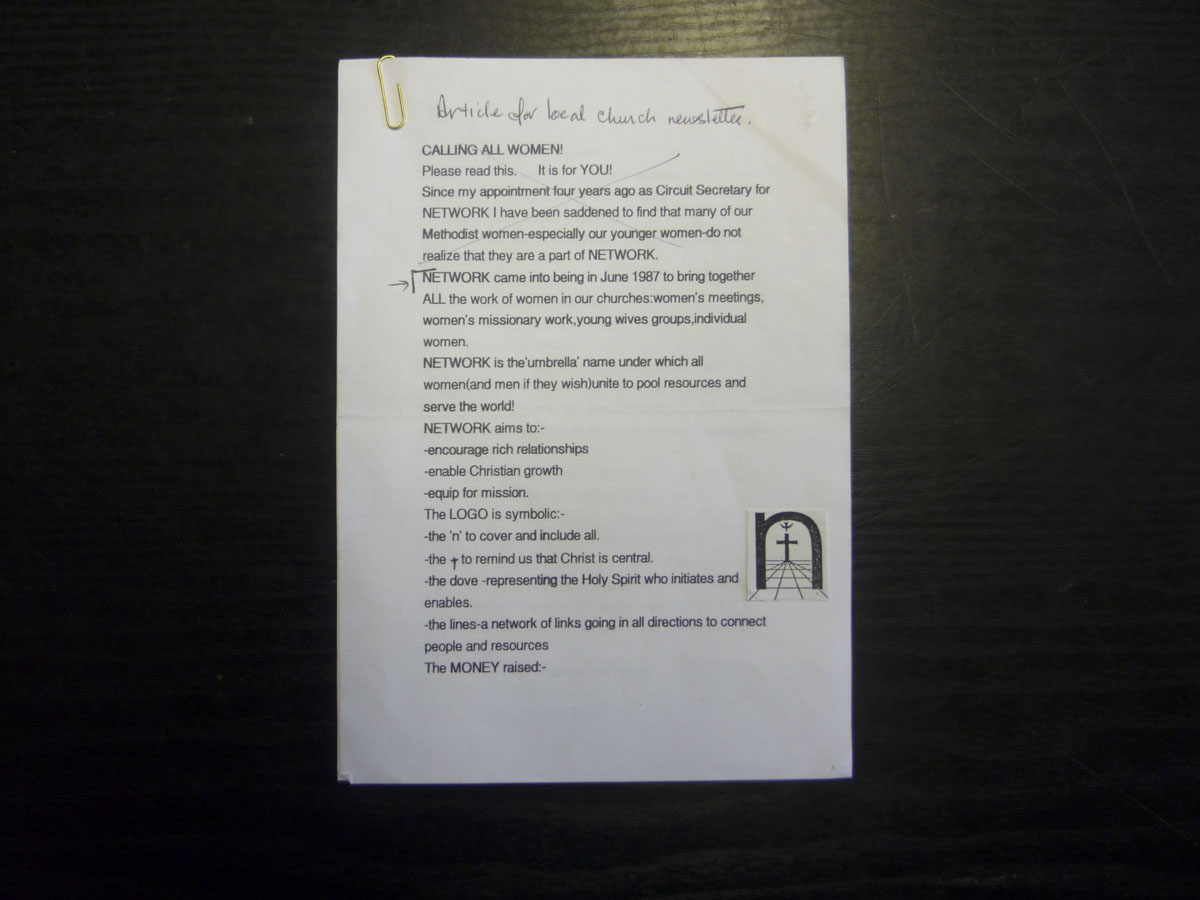 Article for local church newsletter.
CALLING ALL WOMEN!
Please read this. It is for YOU!
Since my appointment four years ago as Circuit Secretary for
NETWORK I have been saddened to find that many of our
Methodist women-especially our younger women-do not
realize that they are a part of NETWORK.
NETWORK came into being in June 1987 to bring together
ALL the work of women in our churches:women's meetings,
women's missionary work,young wives groups,individual
women.
NETWORK is the'umbrella' name under which all
women(and men if they wish)unite to pool resources and
serve the world!
NETWORK aims to:-
-encourage rich relationships
-enable Christian growth
-equip for mission.
The LOGO is symbolic:-
-the 'n' to cover and include all.
-the † to remind us that Christ is central.
-the dove -representing the Holy Spirit who initiates and
enables.
-the lines-a network of links going in all directions to connect
people and resources
The MONEY raised:-
n